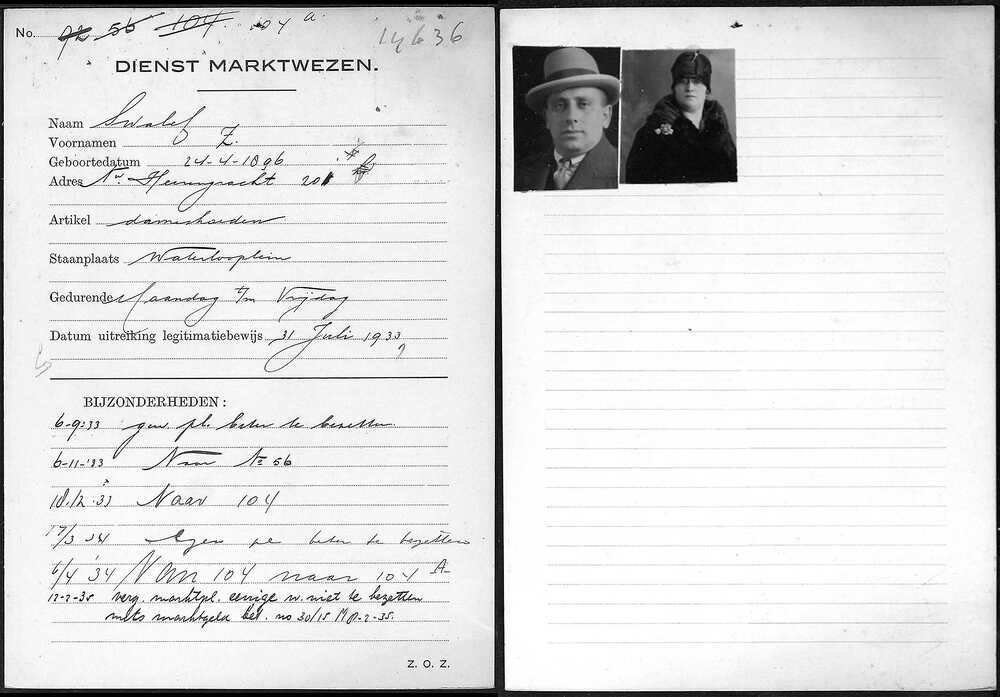 No. 92 56 104. 104 a.
14636
DIENST MARKTWEZEN.
Naam Swalef
Voornamen Z.
Geboortedatum 24-4-1896
Adres Nw. Heerengracht 201
Artikel dameshoeden
Staanplaats Waterlooplein
Gedurende Maandag t/m Vrijdag
Datum uitreiking legitimatiebewijs 31 Juli 1933
BIJZONDERHEDEN:
6-9-33 gew. pl. beter te bezetten.
6-11-'33 Naar No 56
18/12 '33 Naar 104
17/3 34 pl beter te bezetten
6/4 '34 Van 104 naar 104 A
12-2-35 verg. marktpl. eenige w. niet te bezetten
mits marktgeld bet. no 30/15 M -2-35.
Z. O. Z.